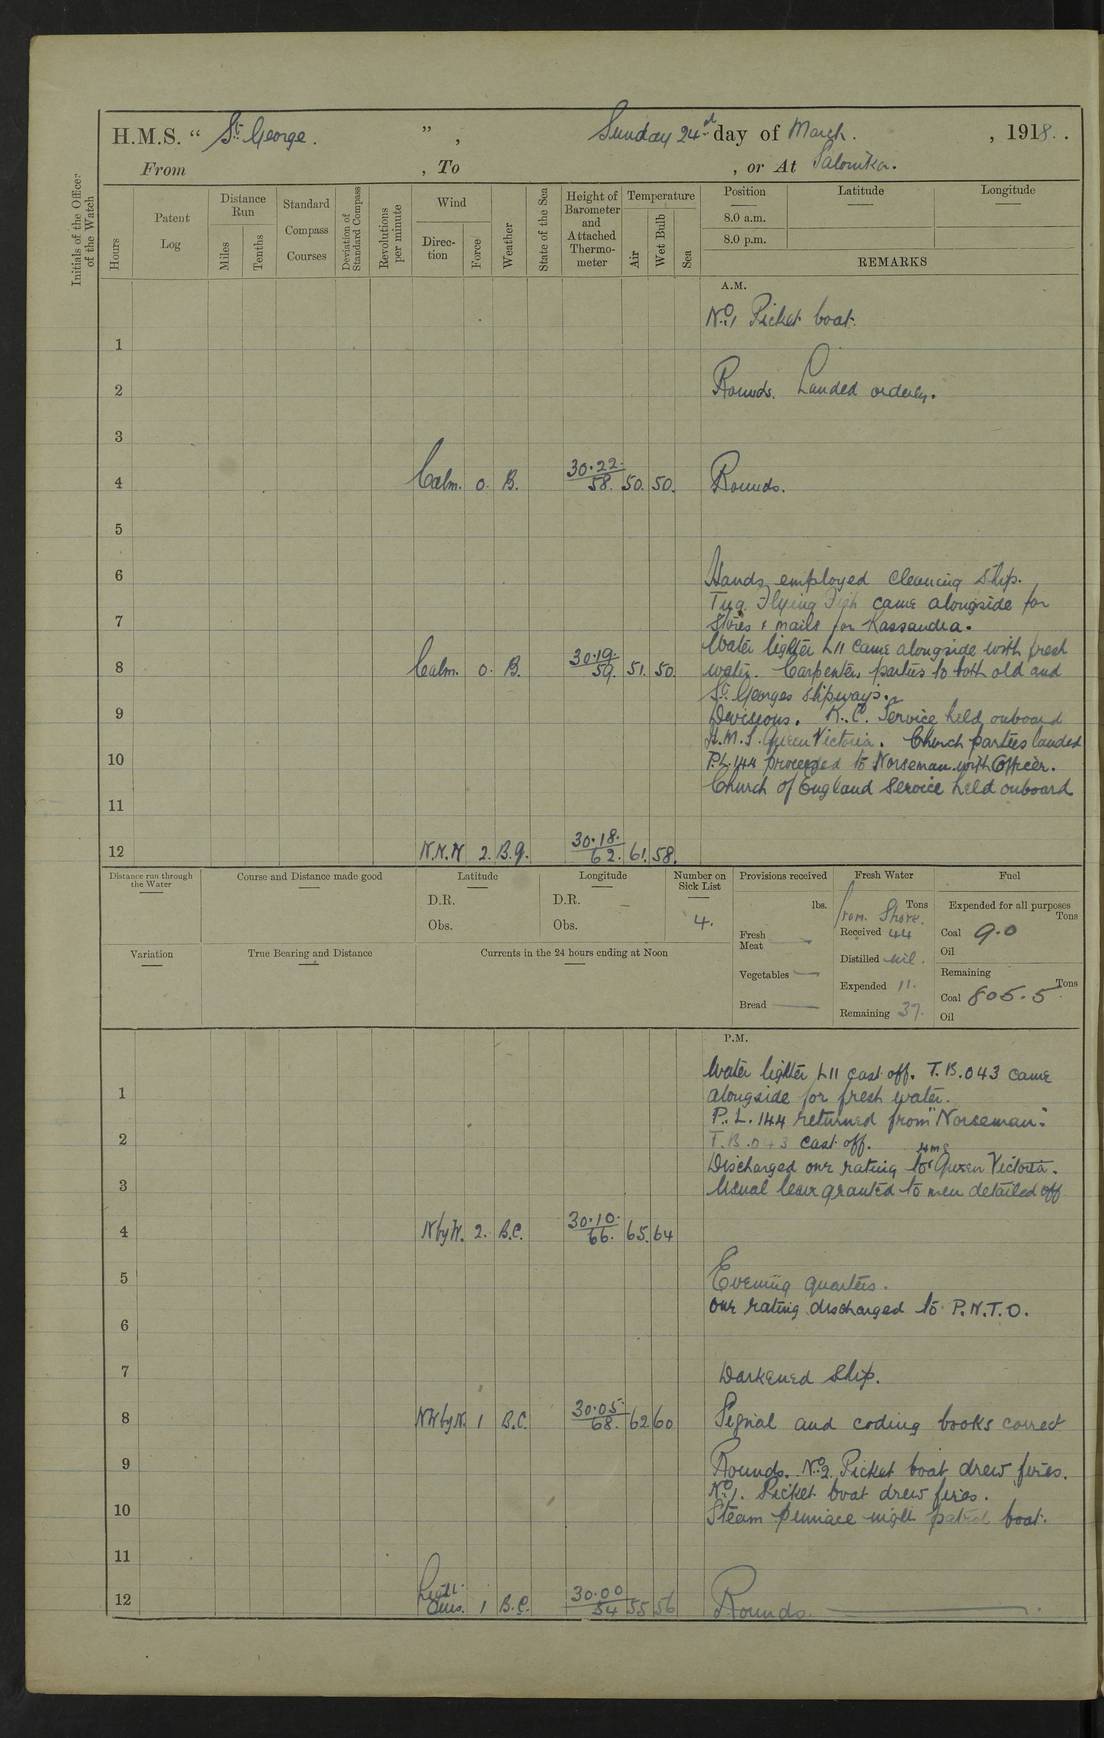 H.M.S. “ St. George. ” , Sunday 24th day of March. , 1918.
From , To , or At Salonika.
Initials of the Officer of the Watch
Hours
Patent Log
Distance Run
Miles
Tenths
Standard Compass Courses
Deviation of Standard Compass
Revolutions per minute
Wind
Direction
Force
Weather
State of the Sea
Height of Barometer and Attached Thermometer
Temperature
Air
Wet Bulb
Sea
Position Latitude Longitude
8.0 a.m.
8.0 p.m.
REMARKS
A.M.
No. 1 Picket boat.
1
2 Rounds. Landed orderly.
3
4 Calm. 0. B. 30.22. 58. 50. 50. Rounds.
5
6 Hands employed cleaning ship.
Tug Flying Fish came alongside for
7 stores & mails for Kassandra.
Water lighter L11 came alongside with fresh
8 Calm. 0. B. 30.19. 59. 51. 50. water. Carpenters parties to both old and
St. Georges slipways.
9 Divisions. R.C. Service held onboard
H.M.S. Queen Victoria. Church parties landed
10 P.L.144 proceeded to Norseman with Officer.
Church of England Service held onboard
11
12 N.N.W 2. B.g. 30.18. 62. 61. 58.
Distance run through the Water
Course and Distance made good
Latitude
D.R.
Obs.
Longitude
D.R.
Obs.
Number on Sick List
4.
Provisions received
lbs.
Fresh Meat
Vegetables
Bread
Fresh Water
Tons
from Shore.
Received 44
Distilled nil.
Expended 11.
Remaining 37.
Fuel
Expended for all purposes
Tons
Coal 9.0
Oil
Remaining
Tons
Coal 805.5
Oil
Variation
True Bearing and Distance
Currents in the 24 hours ending at Noon
P.M.
Water lighter L11 cast off. T.B.043 came
1 alongside for fresh water.
P.L.144 returned from "Norseman."
2 T.B.043 cast off.
Discharged one rating to HMS Queen Victoria.
3 Usual leave granted to men detailed off
4 N by W. 2. B.C. 30.10. 66. 65. 64
5 Evening quarters.
one rating discharged to P.N.T.O.
6
7 Darkened ship.
8 NW by N. 1 B.C. 30.05 68. 62 60 Signal and coding books correct
9 Rounds. No. 2. Picket boat drew fires.
No. 1. Picket boat drew fires.
10 Steam pinnace night patrol boat.
11
12 Light airs. 1 B.C. 30.00 54 55 56 Rounds.